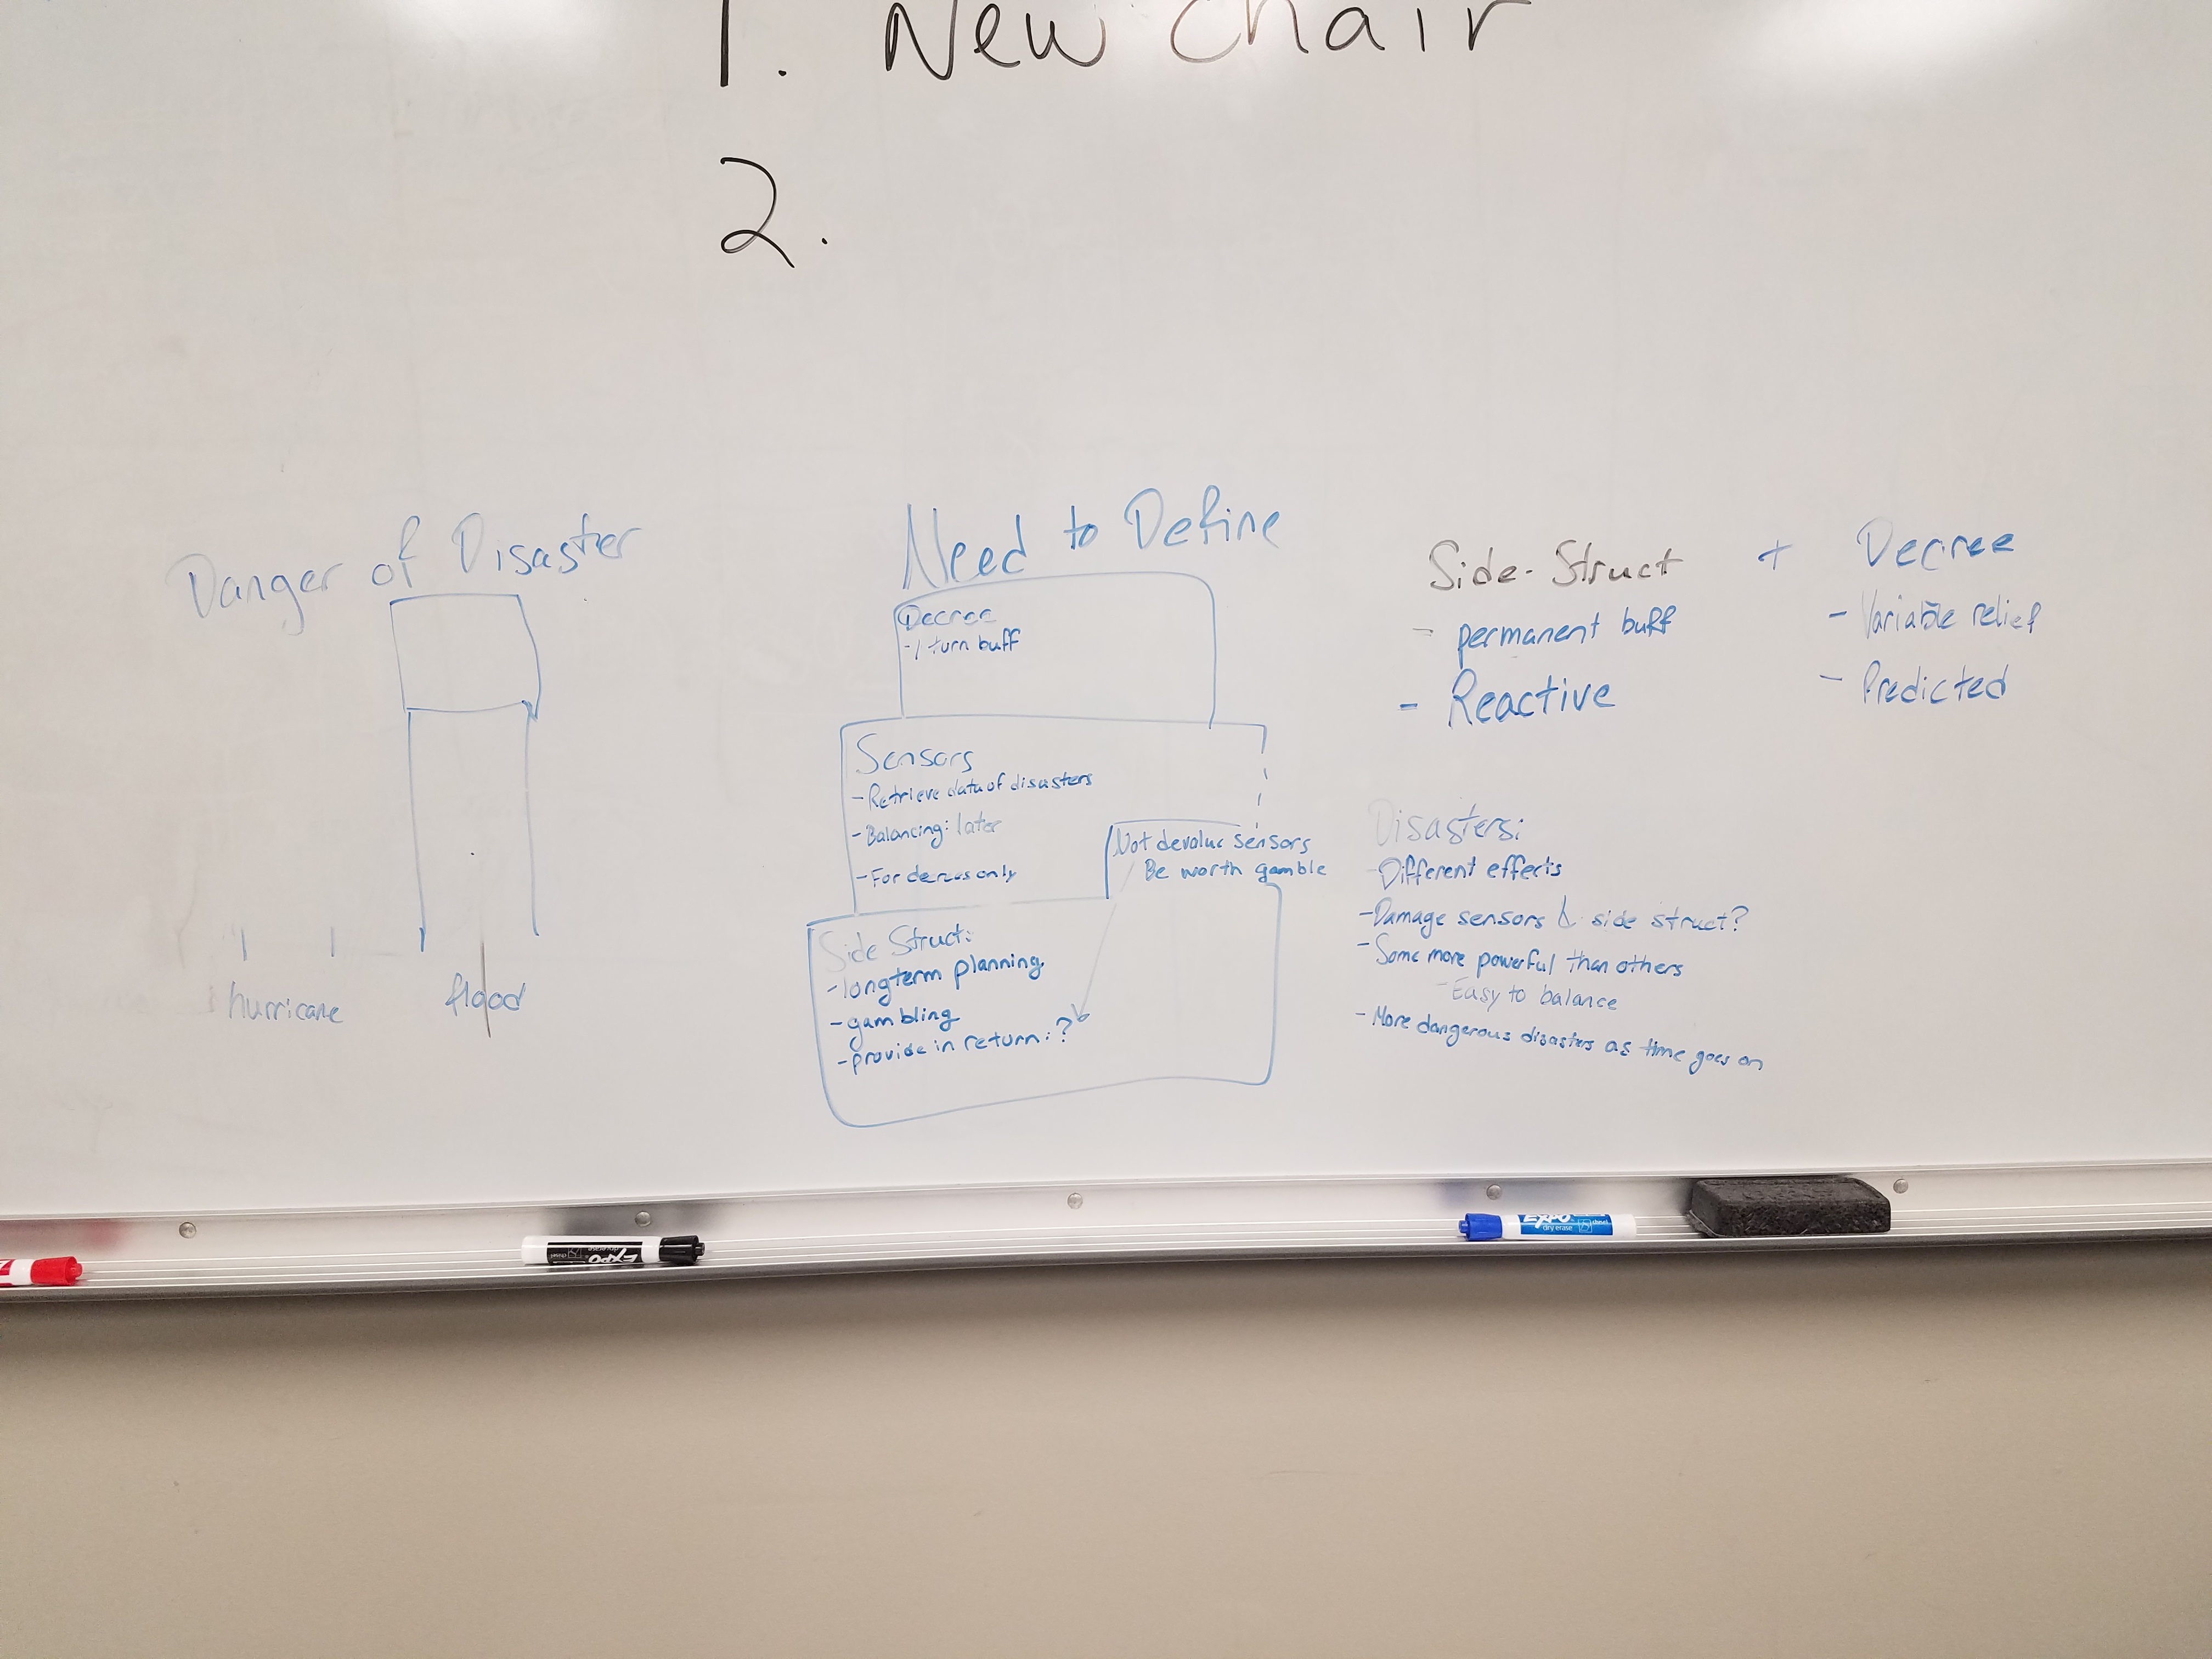 1. New Chair
2.
Danger of Disaster
hurricane
flood
Need to Define
Decree
- 1 turn buff
Sensors
- Retrieve data of disasters
- Balancing: later
- For decrees only
Not devalue sensors
Be worth gamble
Side Struct:
- longterm planning
- gambling
- provide in return: ?
Side-Struct + Decree
- permanent buff
- Reactive
- Variable relief
- Predicted
Disasters:
- Different effects
- Damage sensors & side struct?
- Some more powerful than others
- Easy to balance
- More dangerous disasters as time goes on
EXPO
dry erase
chisel
EXPO
dry erase
chisel